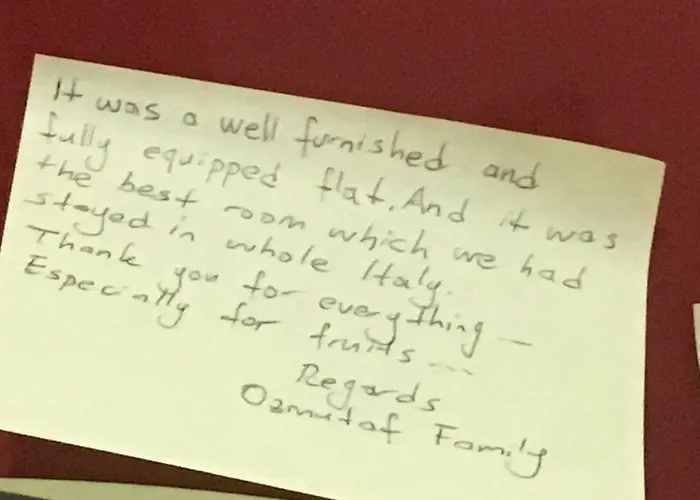 It was a well furnished and
fully equipped flat. And it was
the best room which we had
stayed in whole Italy.
Thank you for everything –
Especially for fruits ...
Regards
Family